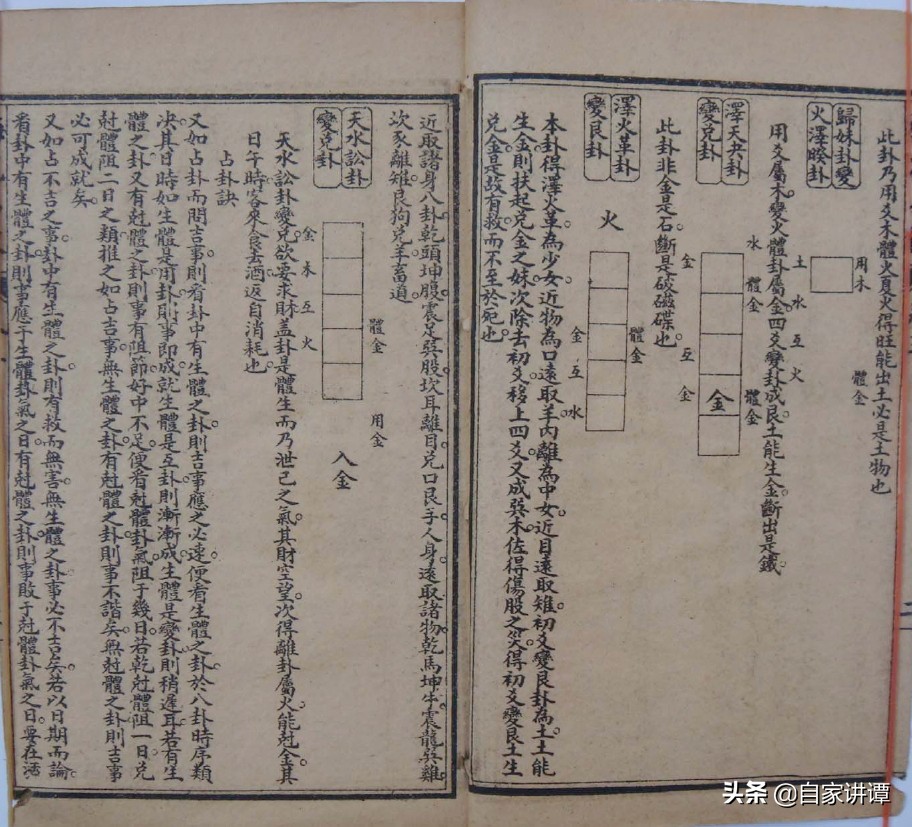 此卦乃用爻木體火夏火得旺能出土必是土物也
歸妹卦變
火澤睽卦
用木
體金
用爻屬木變火體卦屬金四爻變卦成艮土能生金斷出是鐵
土 水 互 火
澤天夬卦
變兌卦
水 體金 體金
金
此卦非金是石斷是破磁碟也
金 互 金
澤火革卦
變艮卦
火
體金
金 互 水
本卦得澤火革為少女近物為口遠取羊內離為中女近目遠取雉初爻變艮卦為土土能
生金則扶起兌金之妹次除去初爻移上四爻又成巽木佐得傷股之災得初爻變艮土生
兌金是故有救而不至於死也
近取諸身八卦乾頭坤腹震足巽股坎耳離目兌口艮手人身遠取諸物乾馬坤牛震龍巽雞
坎豕離雉艮狗兌羊畜道
天水訟卦
變兌卦
體金 用金
入金
金 木 互 火
天水訟卦變兌欲要求財蓋卦是體生而乃泄己之氣其財空望次得離卦屬火能尅金其
日午時客來食去酒返自消耗也
占卦訣
又如占卦而問吉事則看卦中有生體之卦則吉事應之必速便看生體之卦於八卦時序類
決其日時如生體是用卦則事即成就生體是互卦則漸漸成生體是變卦則稍遲耳若有生
體之卦又有尅體之卦則事有阻節好中不足便看尅體卦氣阻于幾日若乾尅體阻一日兌
尅體阻二日之類推之如占吉事無生體之卦有尅體之卦則事不諧矣無尅體之卦則吉事
必可成就矣
又如占不吉之事卦中有生體之卦則有救而無害無生體之卦事必不吉矣若以日期而論
看卦中有生體之卦則事應于生體卦氣之日有尅體之卦則事敗于尅體卦氣之日要在活
头条 @自家讲谭